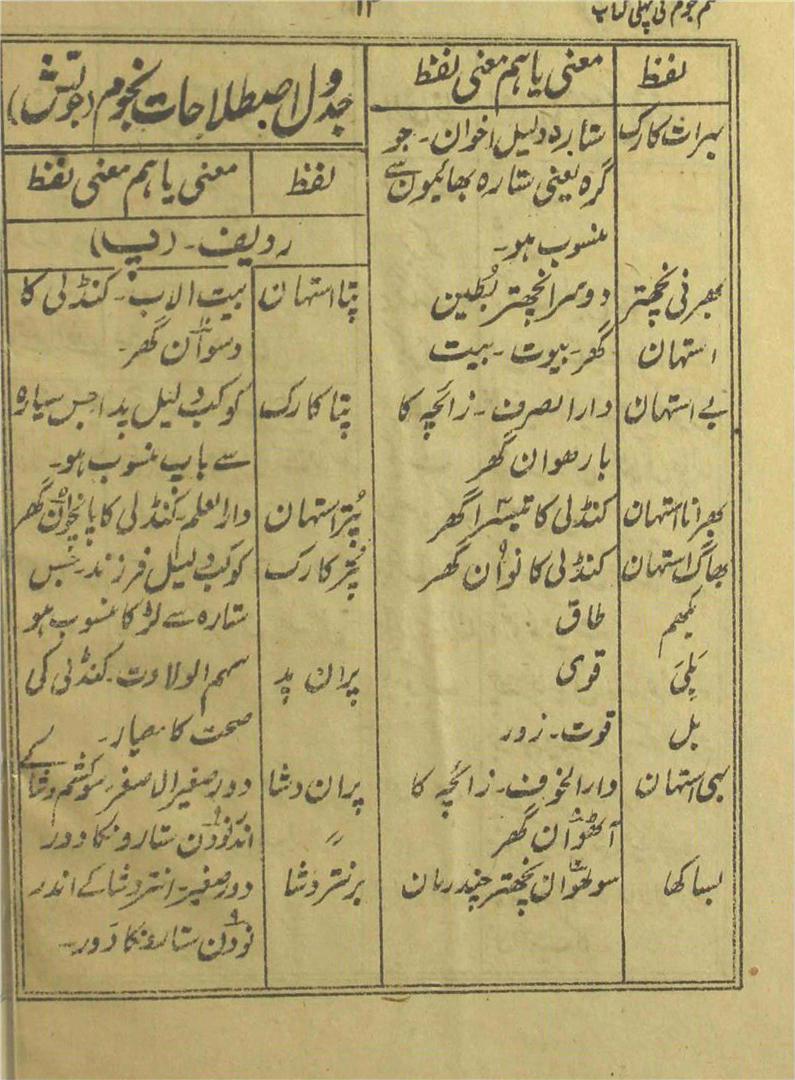 علم نجوم کی پہلی کتاب
۱۳
لفظ معنی یا ہم معنی لفظ
بہرات کارک ستارہ دلیل اخوان۔ جو
گرہ یعنی ستارہ بھائیموں سے
منسوب ہو۔
بھرنی نچھتر دوسرا نچھتر بُطین
استھان گھر۔ بیوت۔ بیت
بے استھان دارالصرف۔ زائچہ کا
بارھواں گھر
بھراتا استھان کنڈلی کا تیسرا ۳ گھر
بھاگ استھان کنڈلی کا نواں ۹ گھر
بکھم طاق
بَلِیَ قوی
بل قوت۔ زور
بہی استھان دارالخوف۔ زائچہ کا
آٹھواں ۸ گھر
بساکھا سولھواں ۱۶ نچھتر چندرمان
جدول اصطلاحات نجوم (جوتش)
لفظ معنی یا ہم معنی لفظ
ردیف۔ (پ)
پتا استھان بیت الاب۔ کنڈلی کا
دسواں ۱۰ گھر۔
پتا کارک کوکب دلیل پدر جس سیارہ
سے باپ منسوب ہو۔
پُتر استھان دارالعلم۔ کنڈلی کا پانچواں ۵ گھر
پُتر کارک کوکب دلیل فرزند۔ جس
ستارہ سے لڑکا منسوب ہو
پران پد سہم الولادت۔ کنڈلی کی
صحت کا معیار۔
پران دشا دور صغیر الاصغر۔ سوکشم دشا کے
〃 اندر نودن ۹ ستارونکا دور
برنتر دشا دور صغیر۔ انتر دشا کے اندر
نودن ۹ ستارونکا دَور۔